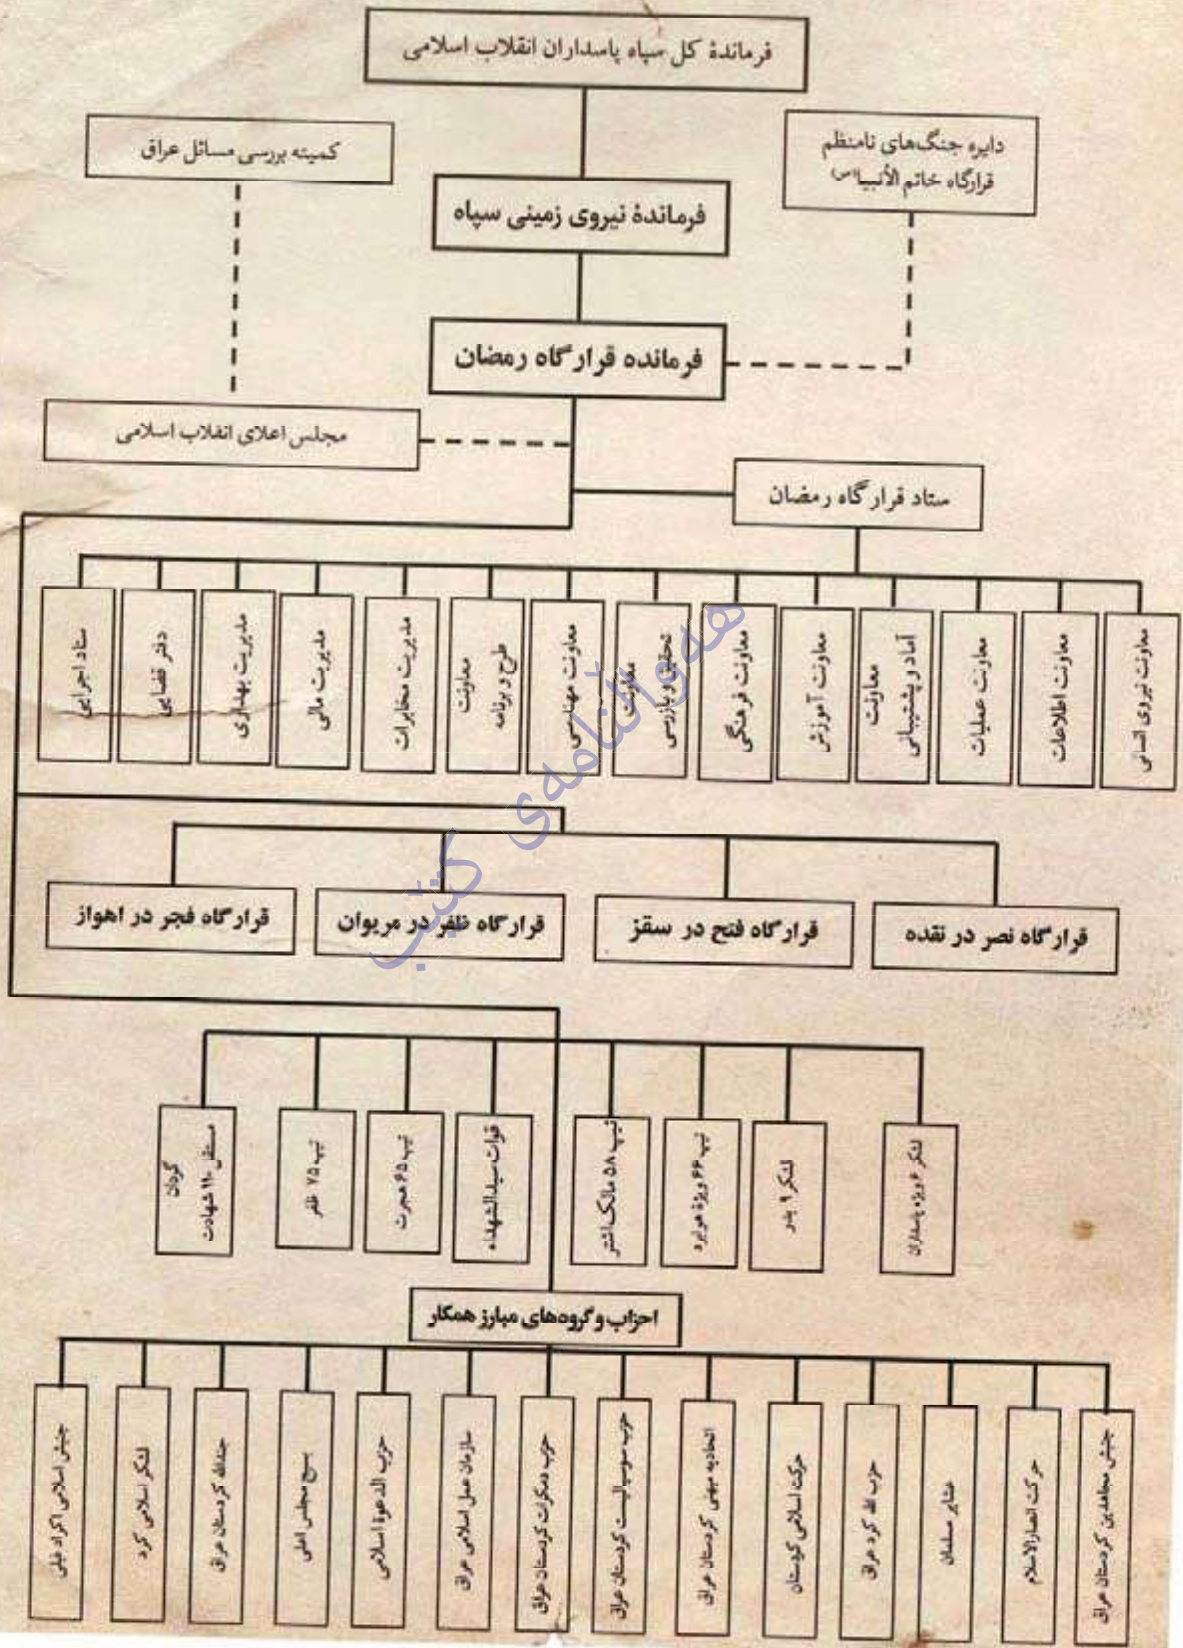 فرماندهٔ کل سپاه پاسداران انقلاب اسلامی
دایره جنگ‌های نامنظم
قرارگاه خاتم الأنبیا(ص)
کمیته بررسی مسائل عراق
فرماندهٔ نیروی زمینی سپاه
فرمانده قرارگاه رمضان
مجلس اعلای انقلاب اسلامی
ستاد قرارگاه رمضان
معاونت نیروی انسانی
معاونت اطلاعات
معاونت عملیات
معاونت
آماد و پشتیبانی
معاونت آموزش
معاونت فرهنگی
معاونت
تحقیق و بازرسی
معاونت مهندسی
معاونت
طرح و برنامه
مدیریت مخابرات
مدیریت مالی
مدیریت بهداری
دفتر قضایی
ستاد اجرایی
قرارگاه نصر در نقده
قرارگاه فتح در سقز
قرارگاه ظفر در مریوان
قرارگاه فجر در اهواز
لشکر ۶ ویژه پاسداران
لشکر ۹ بدر
تیپ ۶۶ ویژهٔ هوابرد
تیپ ۵۸ مالک‌اشتر
قوات سیدالشهداء
تیپ ۶۵ هجرت
تیپ ۷۵ ظفر
گردان
مستقل ۱۱۰ شهادت
احزاب و گروه‌های مبارز همکار
جنبش مجاهدین کردستان عراق
حرکت انصارالاسلام
عشایر مسلمان
حزب الله کرد عراق
حرکت اسلامی کردستان
اتحادیه میهنی کردستان عراق
حزب سوسیالیست کردستان عراق
حزب دمکرات کردستان عراق
سازمان عمل اسلامی عراق
حزب الدعوة اسلامی
بسیج مجلس اعلی
جندالله کردستان عراق
لشکر اسلامی کرد
جنبش اسلامی اکراد فیلی
هەواڵنامەی کتێب